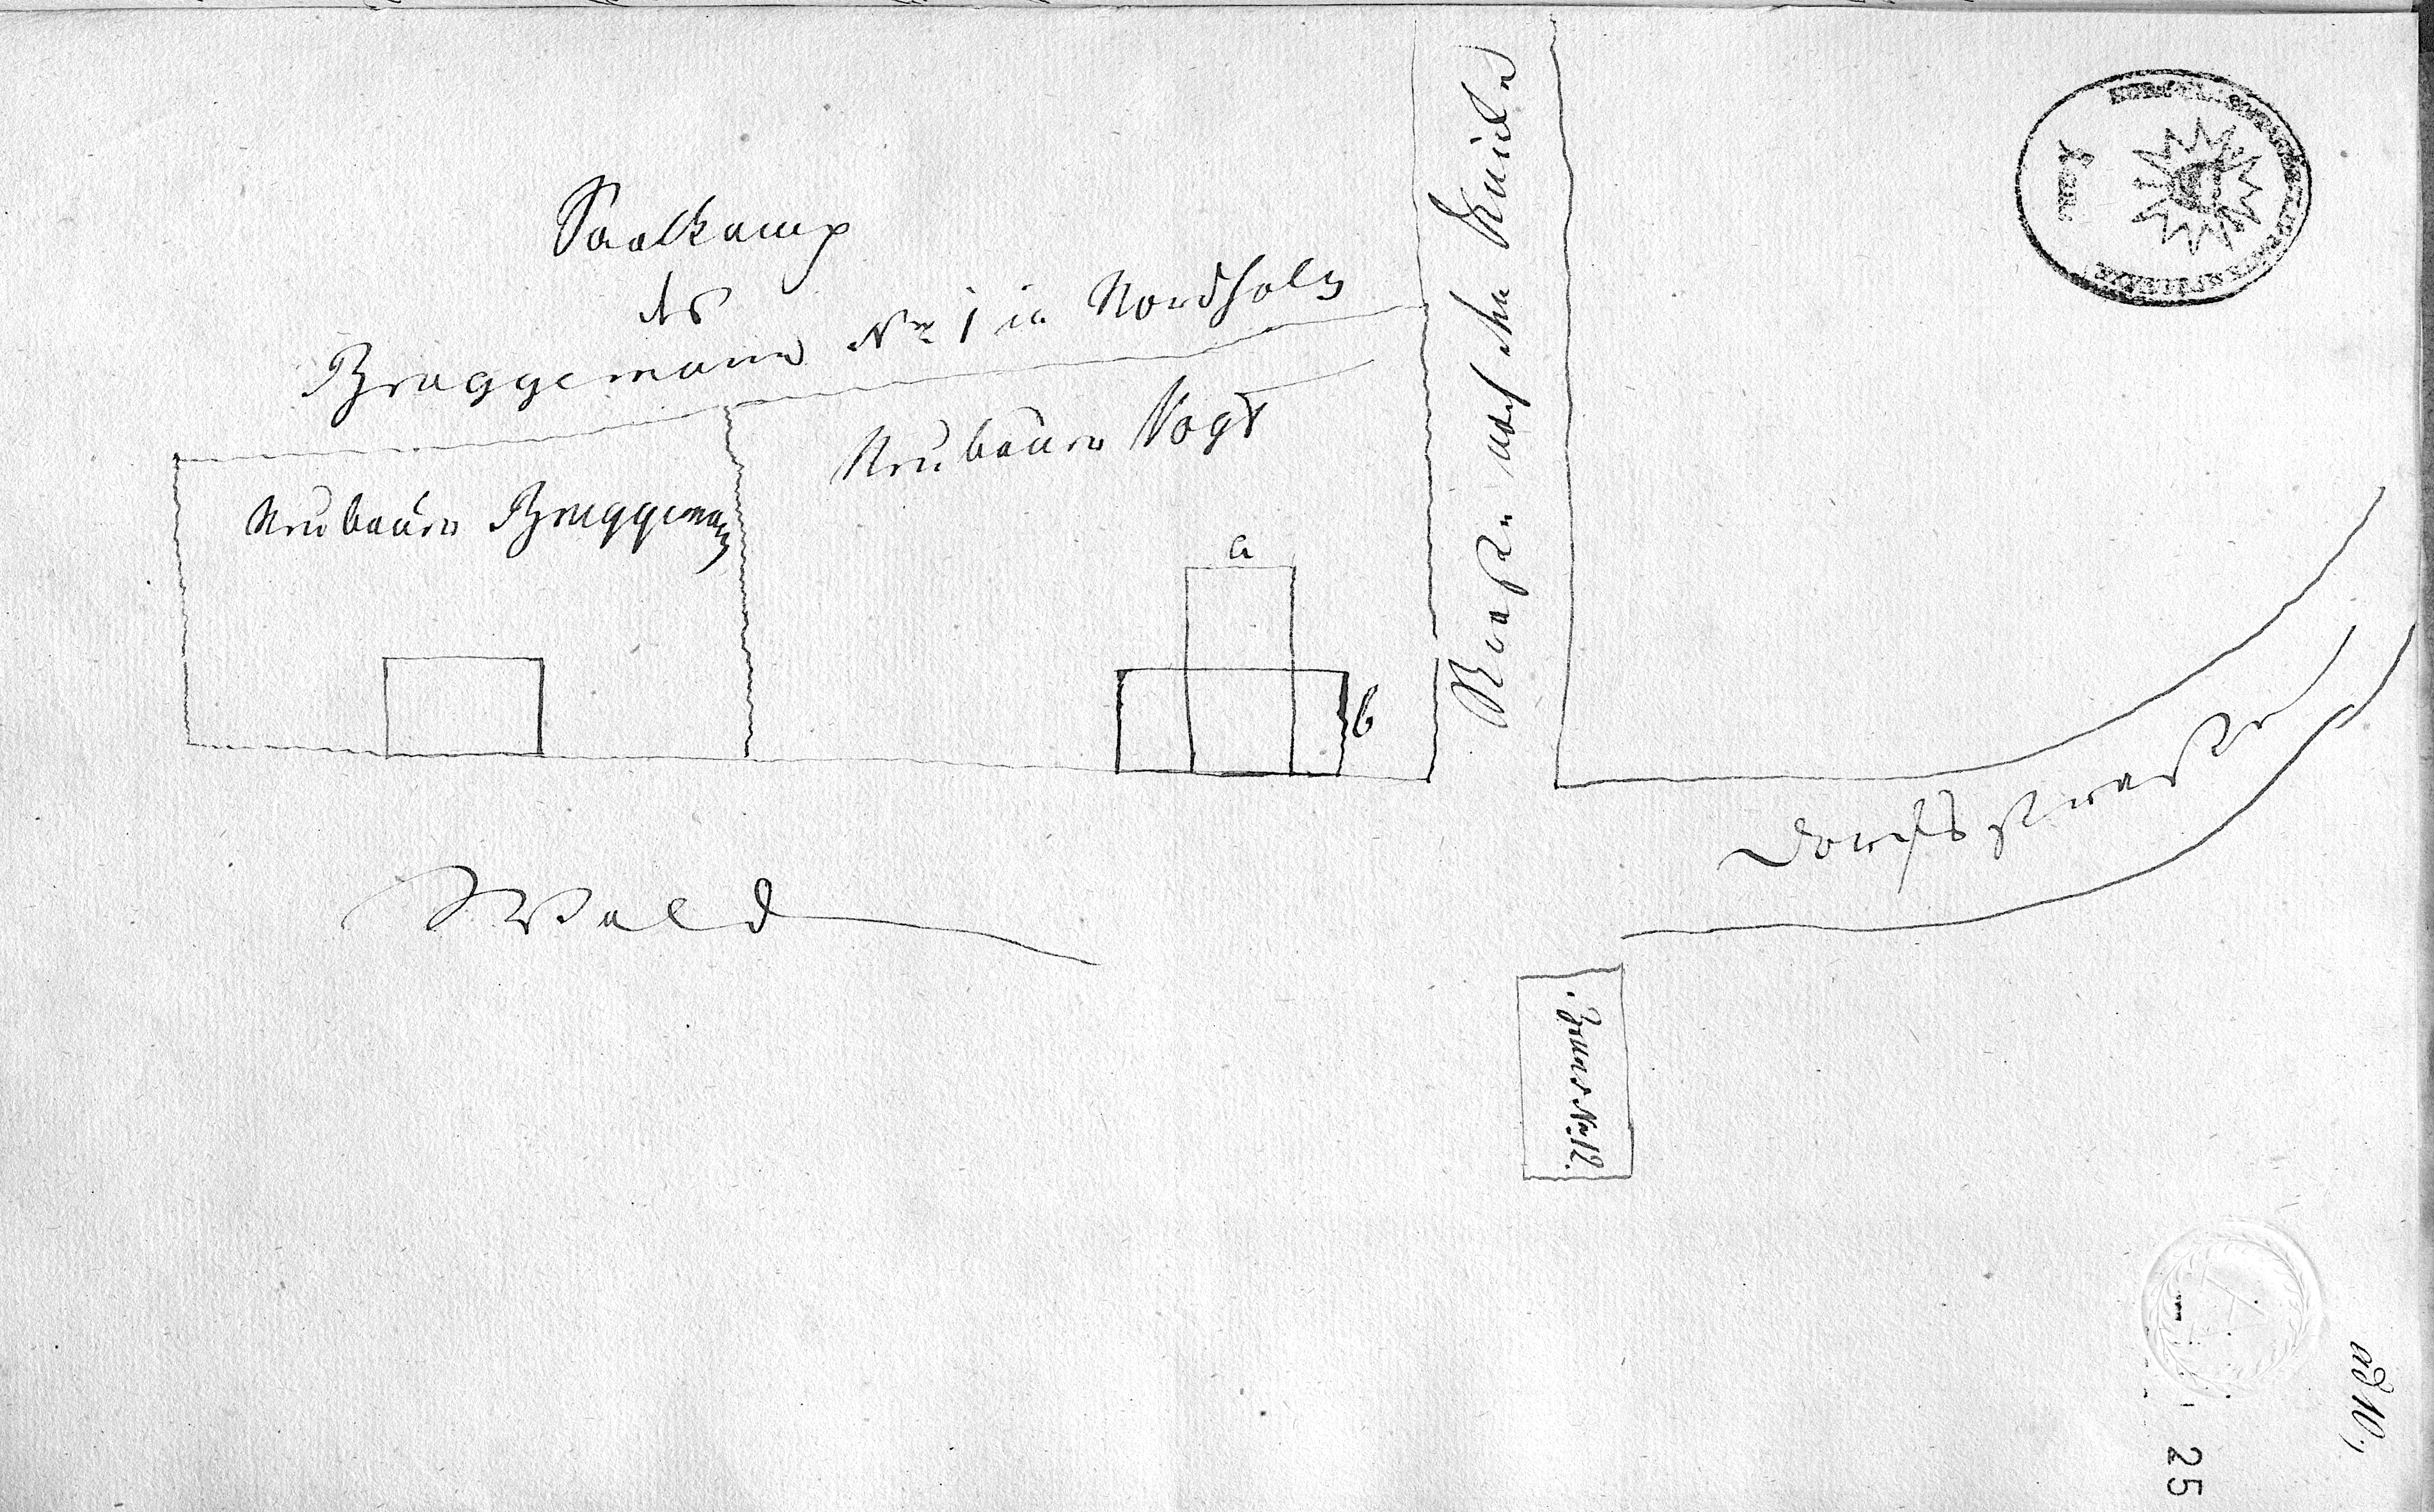 Saalkamp
des
Bruggemann Nr 1 in Nordholz
Neubauer Vogt
Neubauer Bruggemann
a
b
Straße nach den
Wald
Dorfsstraße
Bruns Nr. 12.
ad 10.
25